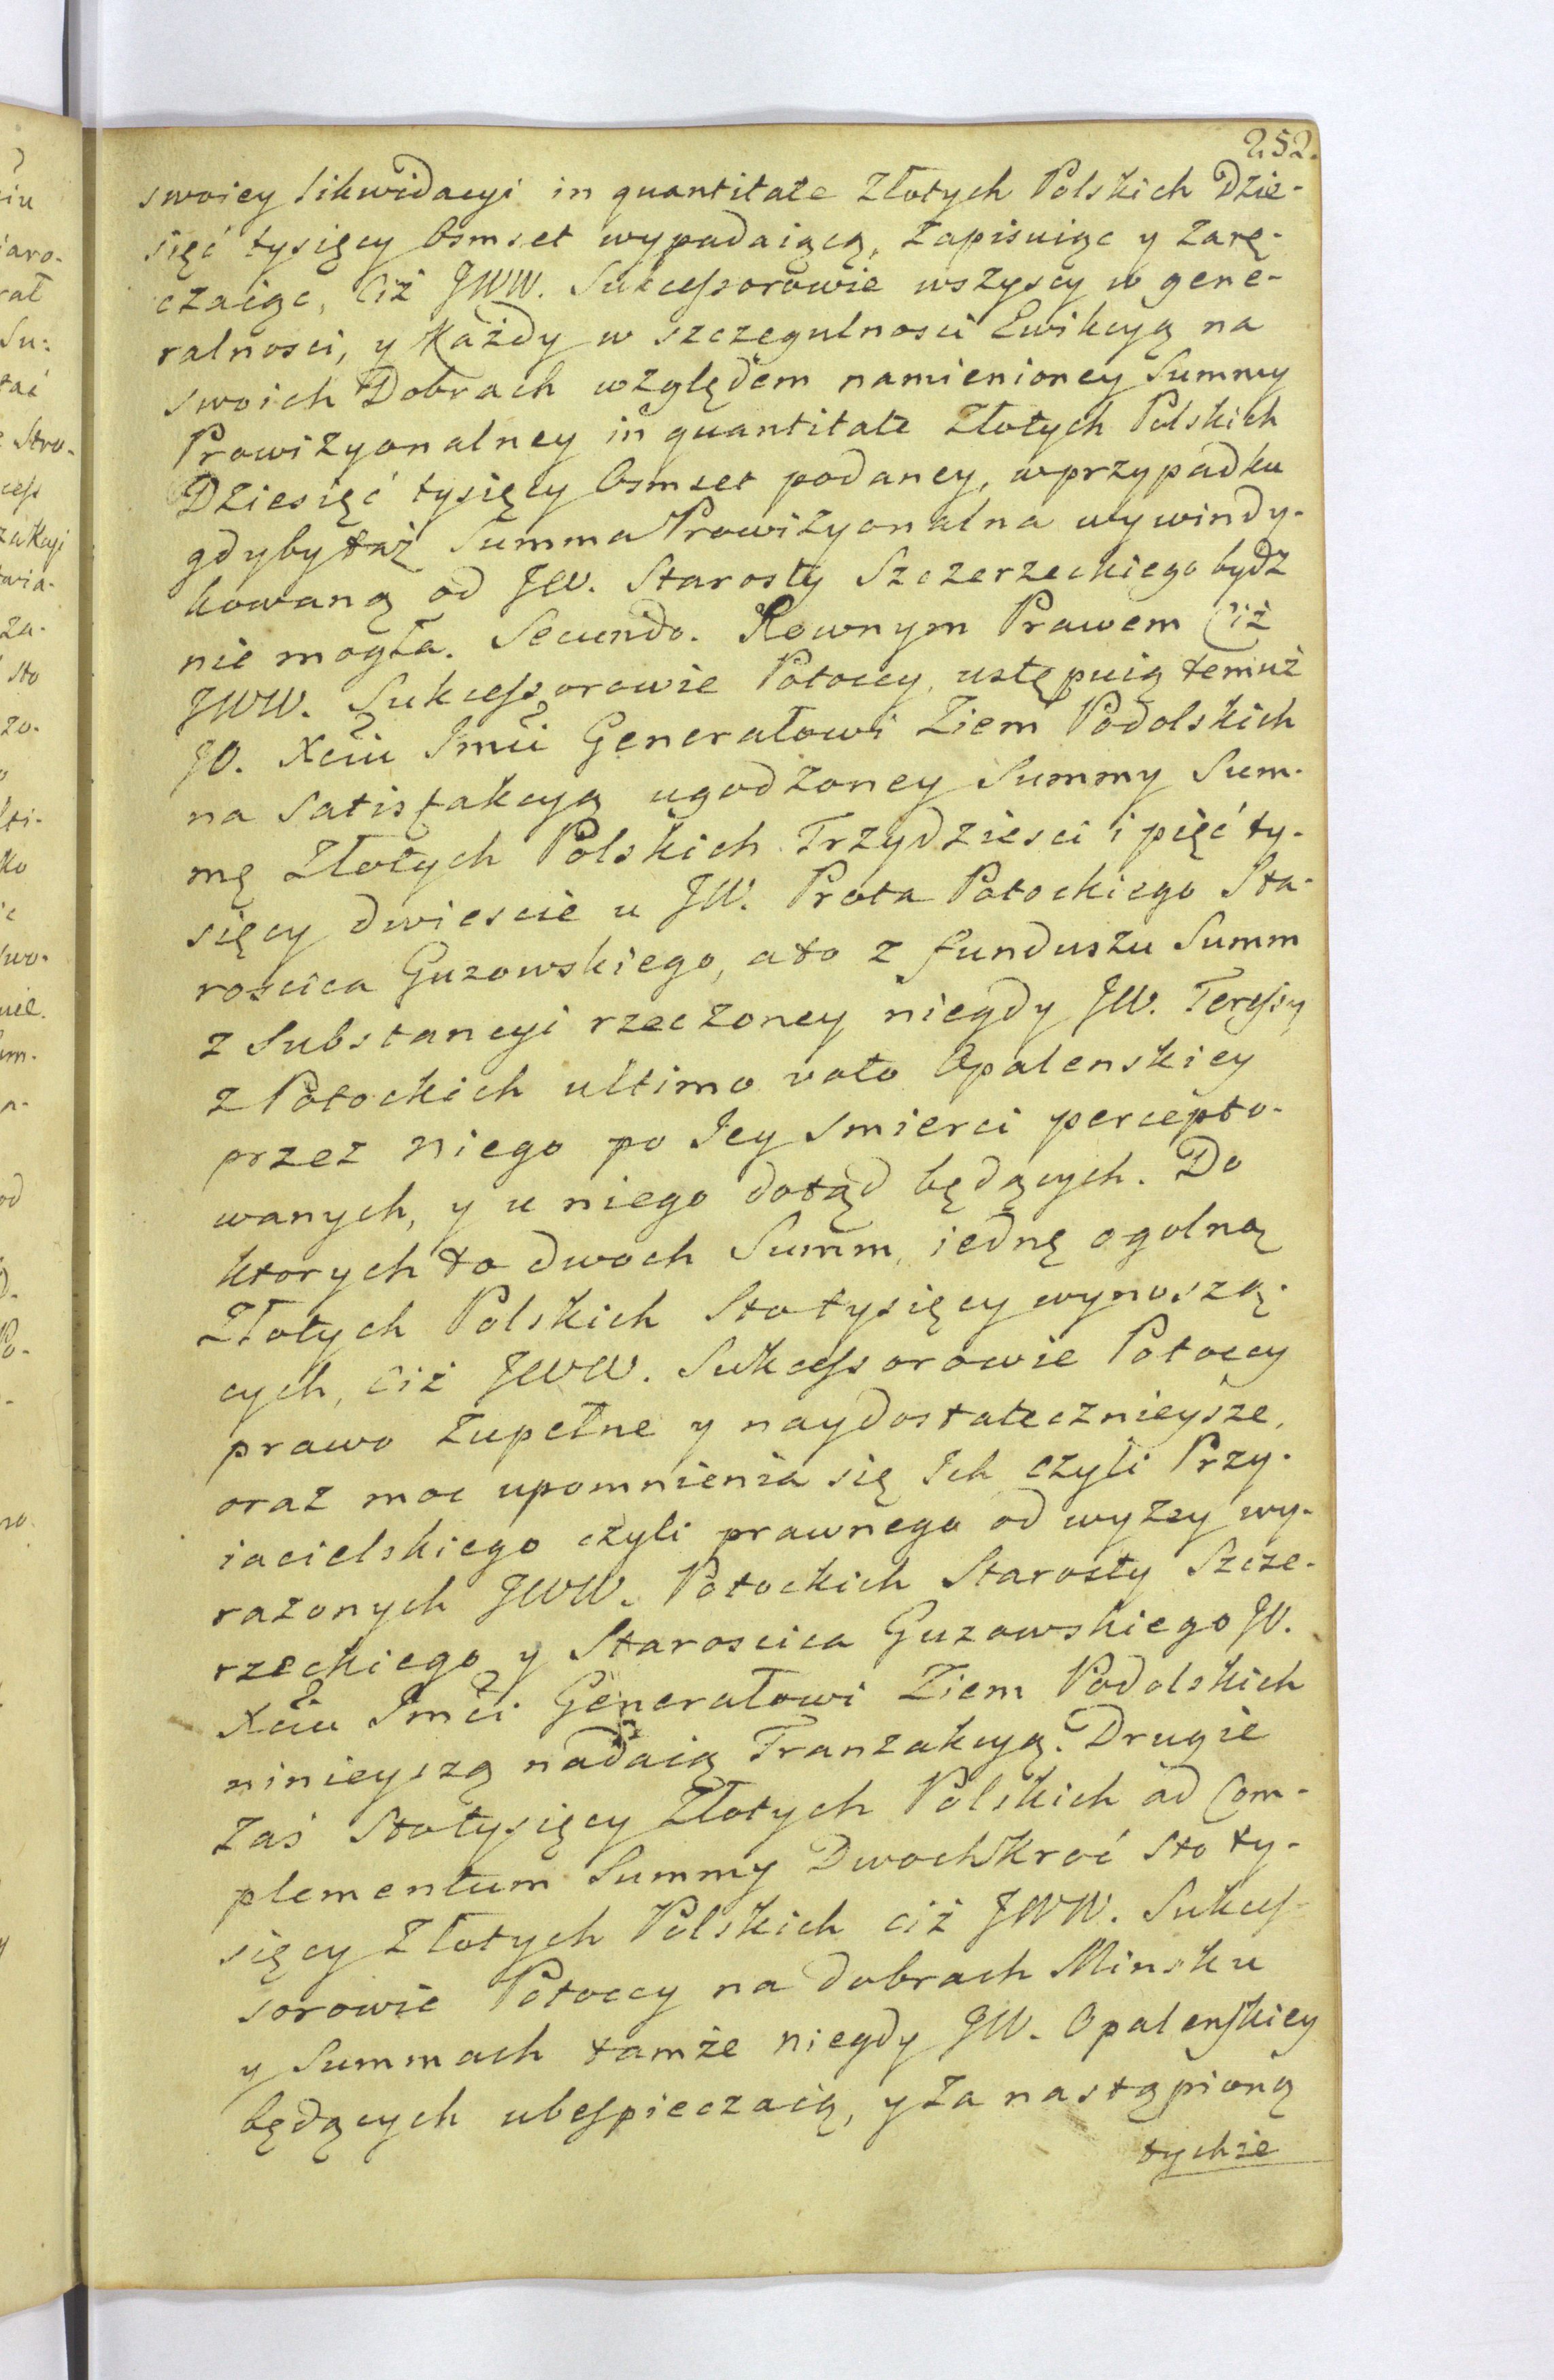 252.
swoiey likwidacyi in quantitate Złotych Polskich Dzie-
sięć tysięcy Osmset wypadaiącą, zapisuiąc y zarę-
czaiąc, Ciż JWW. Sukcessorowie wszyscy w gene-
ralnosci, y Każdy w szczegulnosci Ewikcyą na
swoich Dobrach względem namienioney Summy
Prowizyonalney in quantitate Złotych Polskich
Dziesięć tysięcy Osmset podaney, w przypadku
gdyby taż Summa Prowizyonalna wywindy-
kowaną od JW. Starosty Szczerzeckiego bydz
nie mogła. Secundo. Rownym Prawem Ciż
JWW. Sukcessorowie Potoccy, ustępuią temuż
JO. Xciu Jmci Generałowi Ziem Podolskich
na satisfakcyą ugodzoney Summy Sum-
mę Złotych Polskich Trzydziesci i pięć ty-
sięcy dwiescie u JW. Prota Potockiego Sta-
roscica Guzowskiego, a to z funduszu Summ
z Substancyi rzeczoney niegdy JW. Teressy
z Potockich ultimo voto Opalenskiey
przez niego po Jey smierci percepto-
wanych, y u niego dotąd będących. Do
ktorych to dwoch Summ, iednę ogolną
Złotych Polskich Sto tysięcy wynoszą-
cych, ciż JWW. Sukcessorowie Potoccy
prawo zupełne y naydostatecznieysze,
oraz moc upomnienia się Ich czyli Przy-
iacielskiego czyli prawnego od wyzey wy-
razonych JWW. Potockich Starosty Szcze-
rzeckiego y Staroscica Guzowskiego JO.
Xciu Jmci Generałowi Ziem Podolskich
ninieyszą nadaią Tranzakcyą. Drugie
zaś Sto tysięcy Złotych Polskich ad Com-
plementum Summy Dwochkroć sto ty-
sięcy Złotych Polskich ciż JWW. Sukces-
sorowie Potoccy na dobrach Minsku
y Summach tamże niegdy JW. Opalenskiey
będących ubespieczaią, y za nastąpioną
tychże